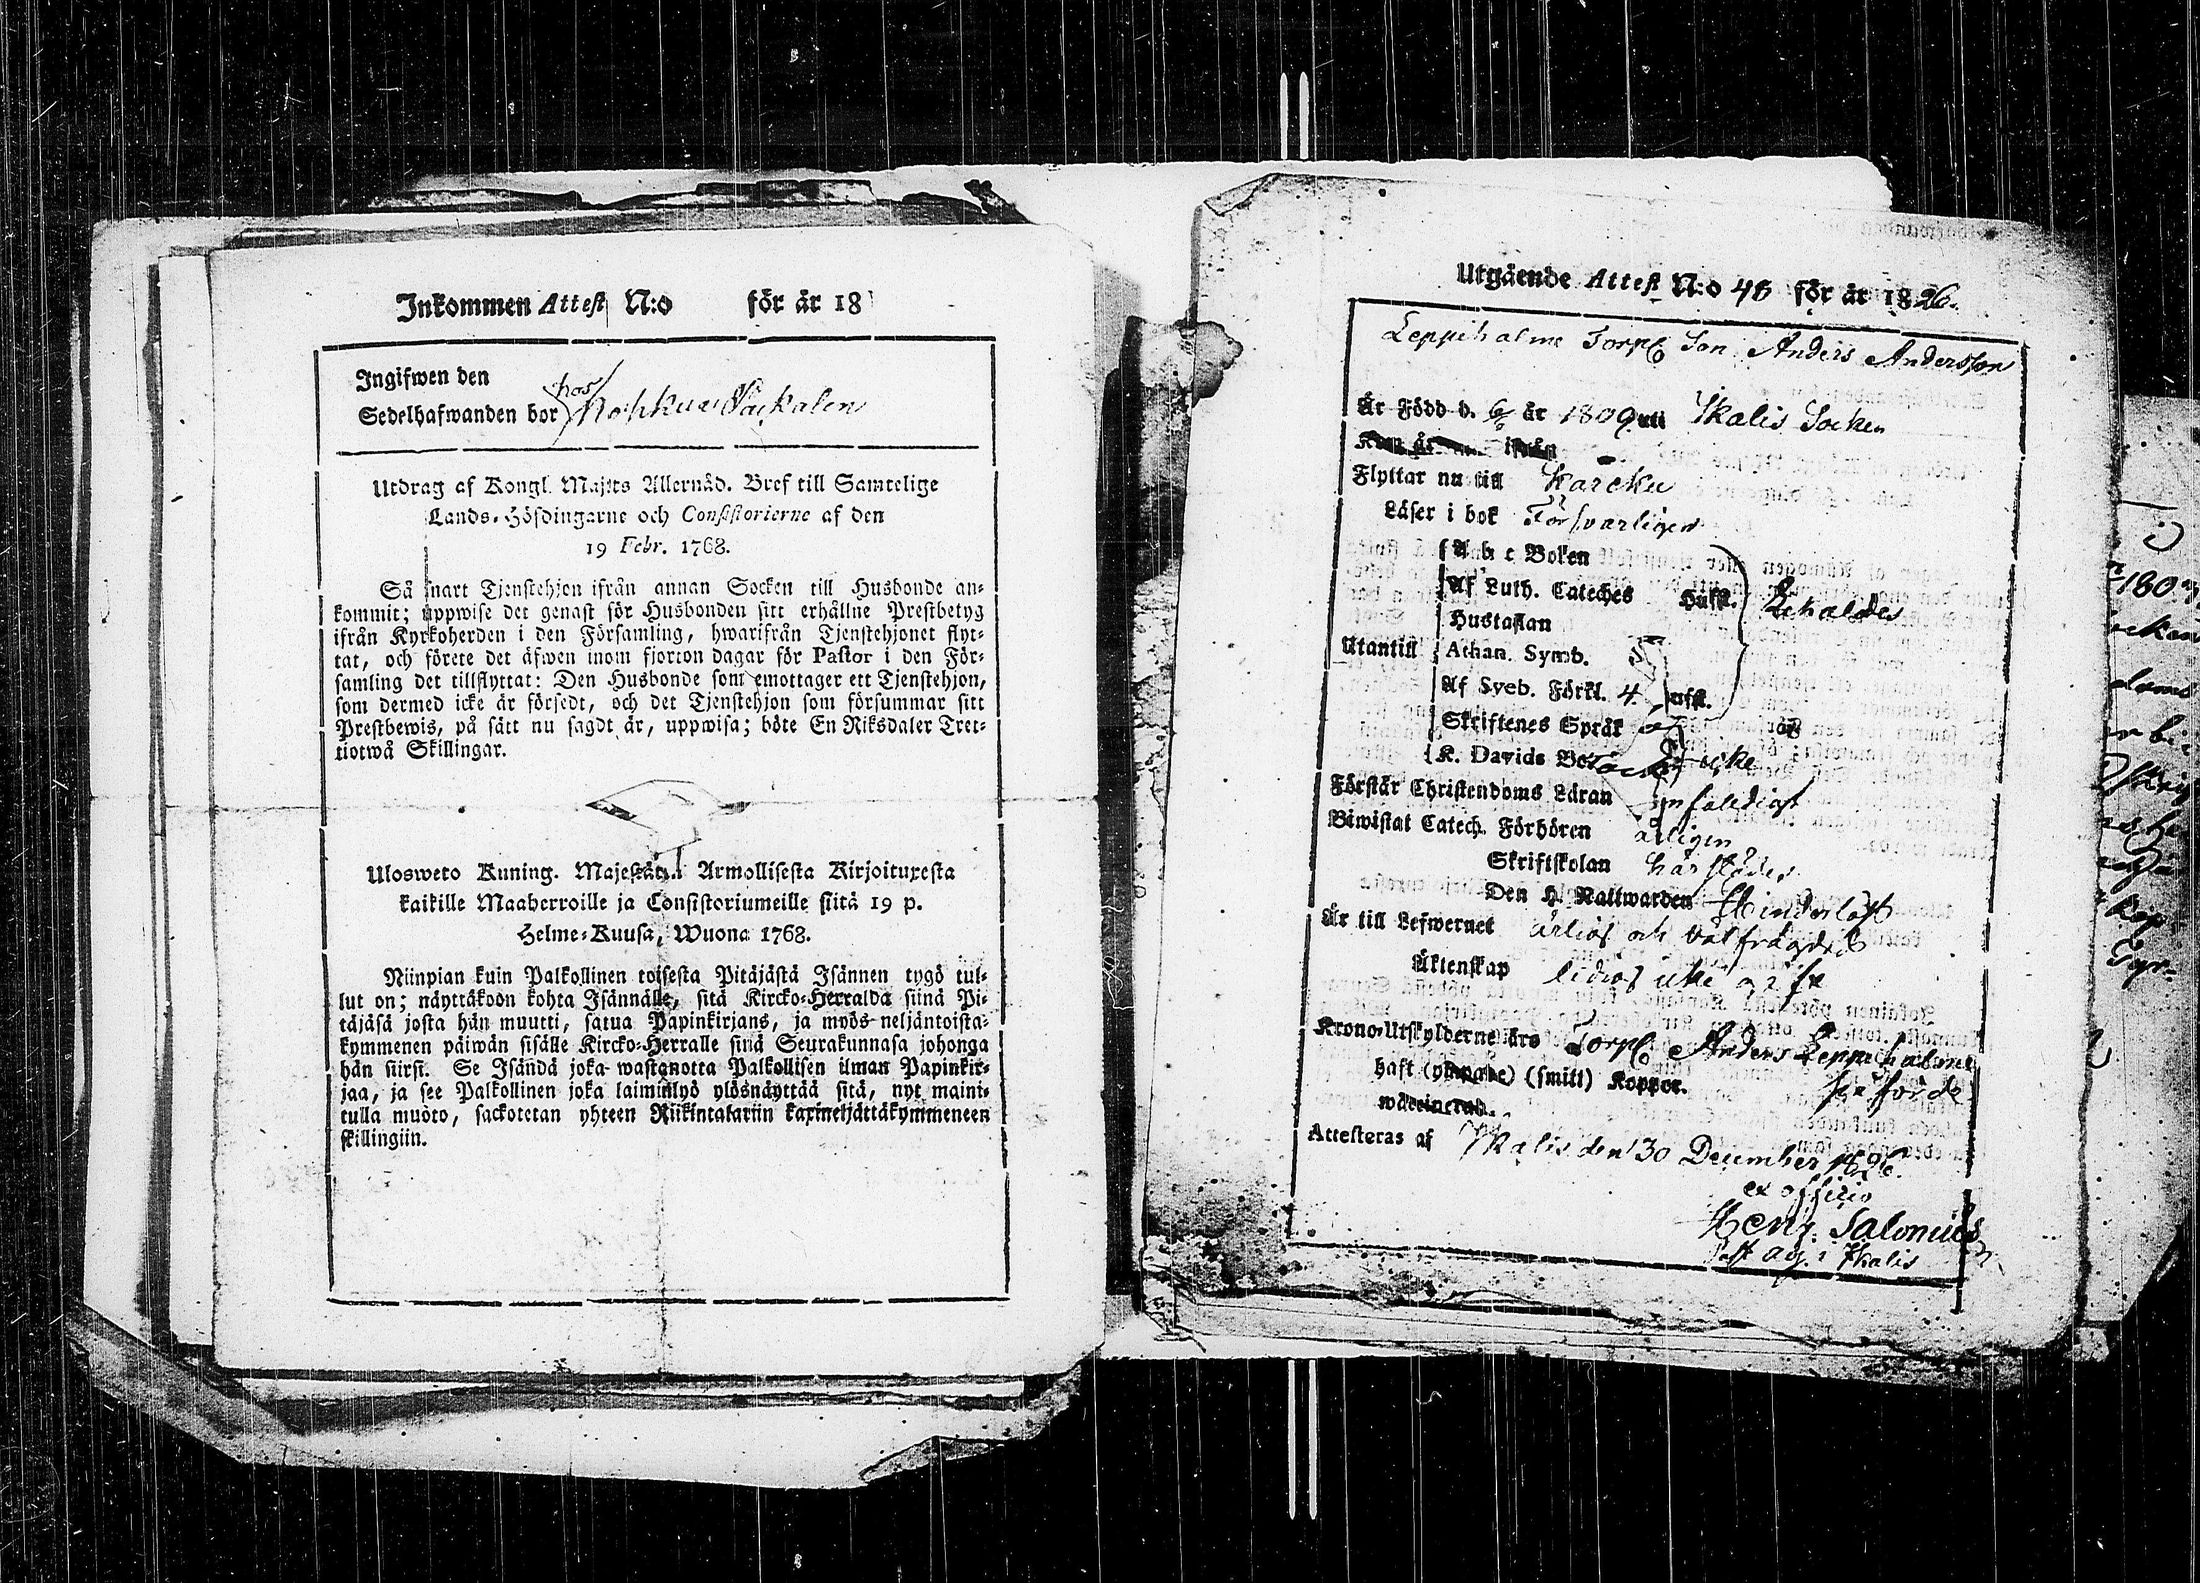 Inkommen Attest N:o för år 18
Ingifwen den
hos
Sedelhafwanden bor
Utdrag af Kongl. Maj:ts Allernåd. Bref till Samtelige
Lands-Höfdingarne och Consistorierne af den
19 Febr. 1768.
Så snart Tjenstehjon ifrån annan Socken till Husbonde an-
kommit; uppwise det genast för Husbonden sitt erhållne Prestbetyg
ifrån Kyrkoherden i den Församling, hwarifrån Tjenstehjonet flyt-
tat, och förete det äfwen inom fjorton dagar för Pastor i den För-
samling det tillflyttat: Den Husbonde som emottager ett Tjenstehjon,
som dermed icke är försedt, och det Tjenstehjon som försummar sitt
Prestbewis, på sätt nu sagdt är, uppwisa; böte En Riksdaler Tret-
tiotwå Skillingar.
Ulosweto Kuning. Majestätin Armollisesta Kirjoituxesta
kaikille Maaherroille ja Consistoriumeille siitä 19 p.
Helme-Kuusa, Wuona 1768.
Niinpian kuin Palkollinen toisesta Pitäjästä Isännen tygö tul-
lut on; näyttäköön kohta Isännälle, sitä Kircko-Herralda siinä Pi-
täjäsä josta hän muutti, saatua Papinkirjans, ja myös neljäntoista-
kymmenen päiwän sisälle Kircko-Herralle siinä Seurakunnasa johonga
hän siirsi. Se Isändä joka wastanotta Palkollisen ilman Papinkir-
jaa, ja see Palkollinen joka laiminlyö ylösnäyttää sitä, nyt mainit-
tulla muoto, sackotetan yhteen Riikintalariin kaxineljättäkymmeneen
skillingiin.
Utgående Attest N:o 48 för år 1826.
Leppihalme Torp. Son Anders Andersson
Är Född d. 6/ år 1809 uti Ikalis Socken
ifrån
Flyttar nu till Karcku
Läser i bok Försvarligen
Ab c Boken
Af Luth. Cateches Hufst.
Hustaflan Behåldes
Utantill Athan. Symb.
Af Sveb. Förkl. 4. Hufst.
Skriftenes Språk
K. Davids Bot icke
Förstår Christendoms Läran enfaldigt
Biwistat Catech. Förhören årligen
Skriftskolan härstädes
Den H. Nattwarden Hinderlöst
Är till Lefwernet ärlig och välfrägdad
Äktenskap ledig icke
Krono-Utskylderne äro Torp. Anders Leppihalme
haft (ympade) (smitt) Koppor. påförde
Attesteras af Ikalis den 30 December 1826.
ex officio
Henr. Salonius
Past adj. i Ikalis